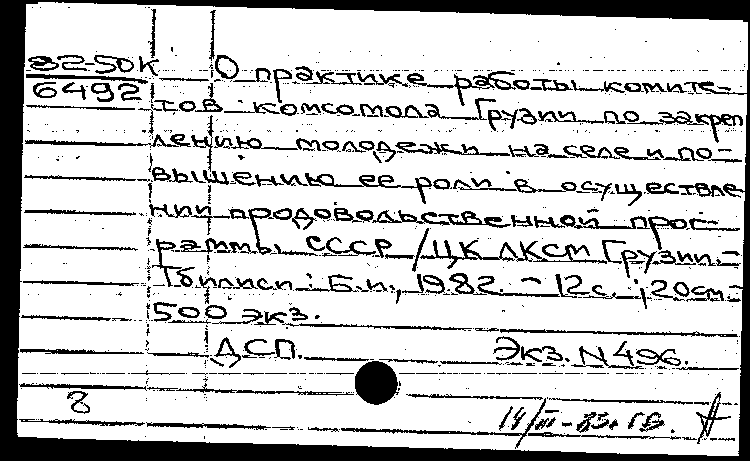 82-50К О практике работы комите-
6492 тов комсомола Грузии по закреп
лению молодежи на селе и по-
вышению ее роли в осуществле
нии продовольственной прог-
раммы СССР / ЦК ЛКСМ Грузии.-
Тбилиси: Б.и., 1982. - 12 с. ; 20 см.-
500 экз.
ДСП. Экз. N 496.
8
14/III-83г.